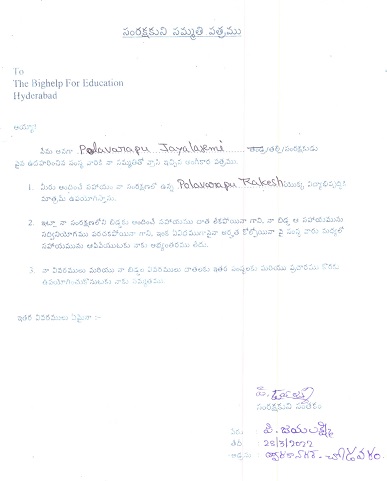 సంరక్షకుని సమ్మతి పత్రము
To
The Bighelp For Education
Hyderabad
అయ్యా!
నేను అనగా Polavarapu Jayalaxmi తండ్రి/తల్లి/సంరక్షకుడు
పైన ఉదహరించిన సంస్థ వారికి నా సమ్మతితో వ్రాసి ఇచ్చిన అంగీకార పత్రము.
1. మీరు అందించే సహాయం నా సంరక్షణలో ఉన్న Polavarapu Rakesh యొక్క విద్యాభివృద్ధికి
మాత్రమే ఉపయోగిస్తాను.
2. ఇట్లా నా సంరక్షణలోని బిడ్డకు అందించే సహాయము దాత లేకపోయినా గానీ, నా బిడ్డ ఆ సహాయమును
సద్వినియోగము పరచకపోయినా గానీ, ఇంకే విధముగానైనా అర్హత కోల్పోయినా పై సంస్థ వారు మధ్యలో
సహాయమును ఆపివేయుటకు నాకు అభ్యంతరము లేదు.
3. నా వివరములు మరియు నా బిడ్డల వివరములు దాతలకు ఇతర సంస్థలకు మరియు ప్రచారము కొరకు
ఉపయోగించుకొనుటకు నాకు సమ్మతము.
ఇతర వివరములు ఏమైనా :-
సంరక్షకుని సంతకం
పేరు : పి. జయలక్ష్మి
తేదీ : 28/3/2022